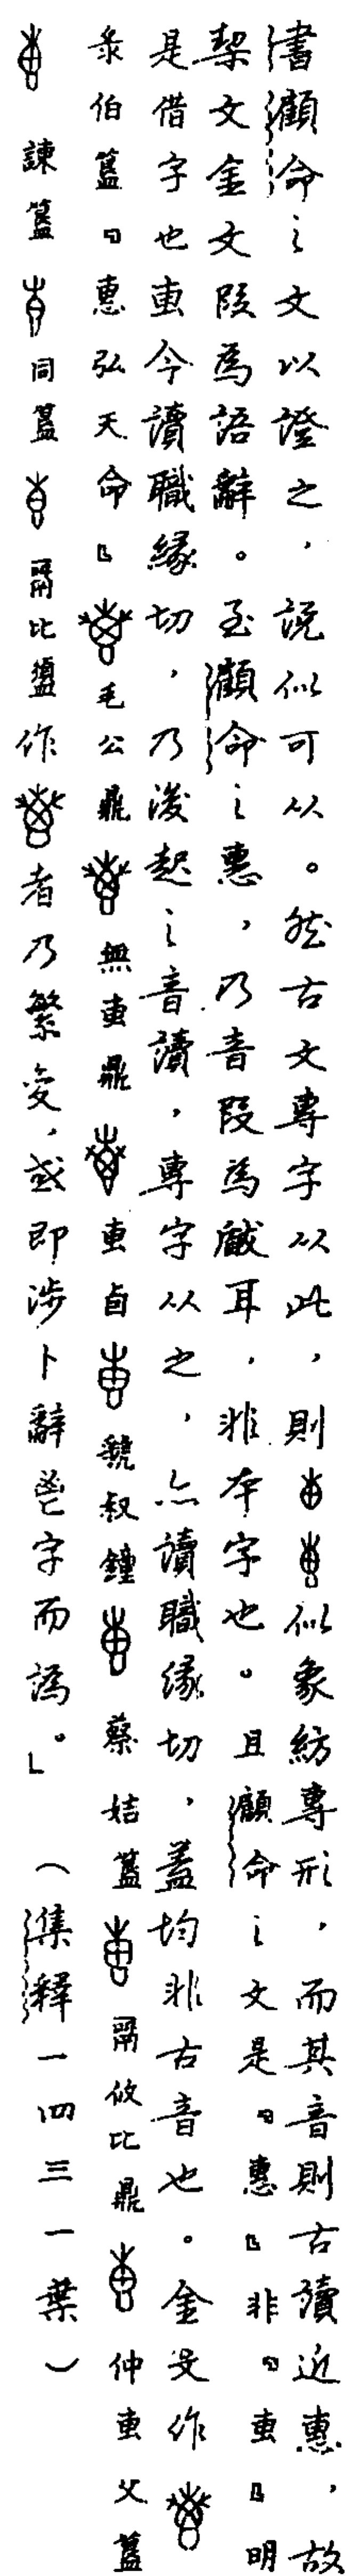 書顧命之文以證之，說似可从。然古文專字从此，則似象紡專形，而其音則古讀近惠，故
契文金文叚為語辭。至顧命之惠，乃音叚為䤥耳，非本字也。且顧命之文是『惠』非『叀』明
是借字也叀今讀職緣切，乃後起之音讀，專字从之，亦讀職緣切，蓋均非古音也。金文作
彔伯簋『惠弘天命』毛公鼎無叀鼎叀卣虢叔鐘蔡姞簋䰜攸比鼎仲叀父簋
諫簋同簋䰜比盨作者乃繁变，或即涉卜辭鬯字而譌。」（集釋一四三一葉）